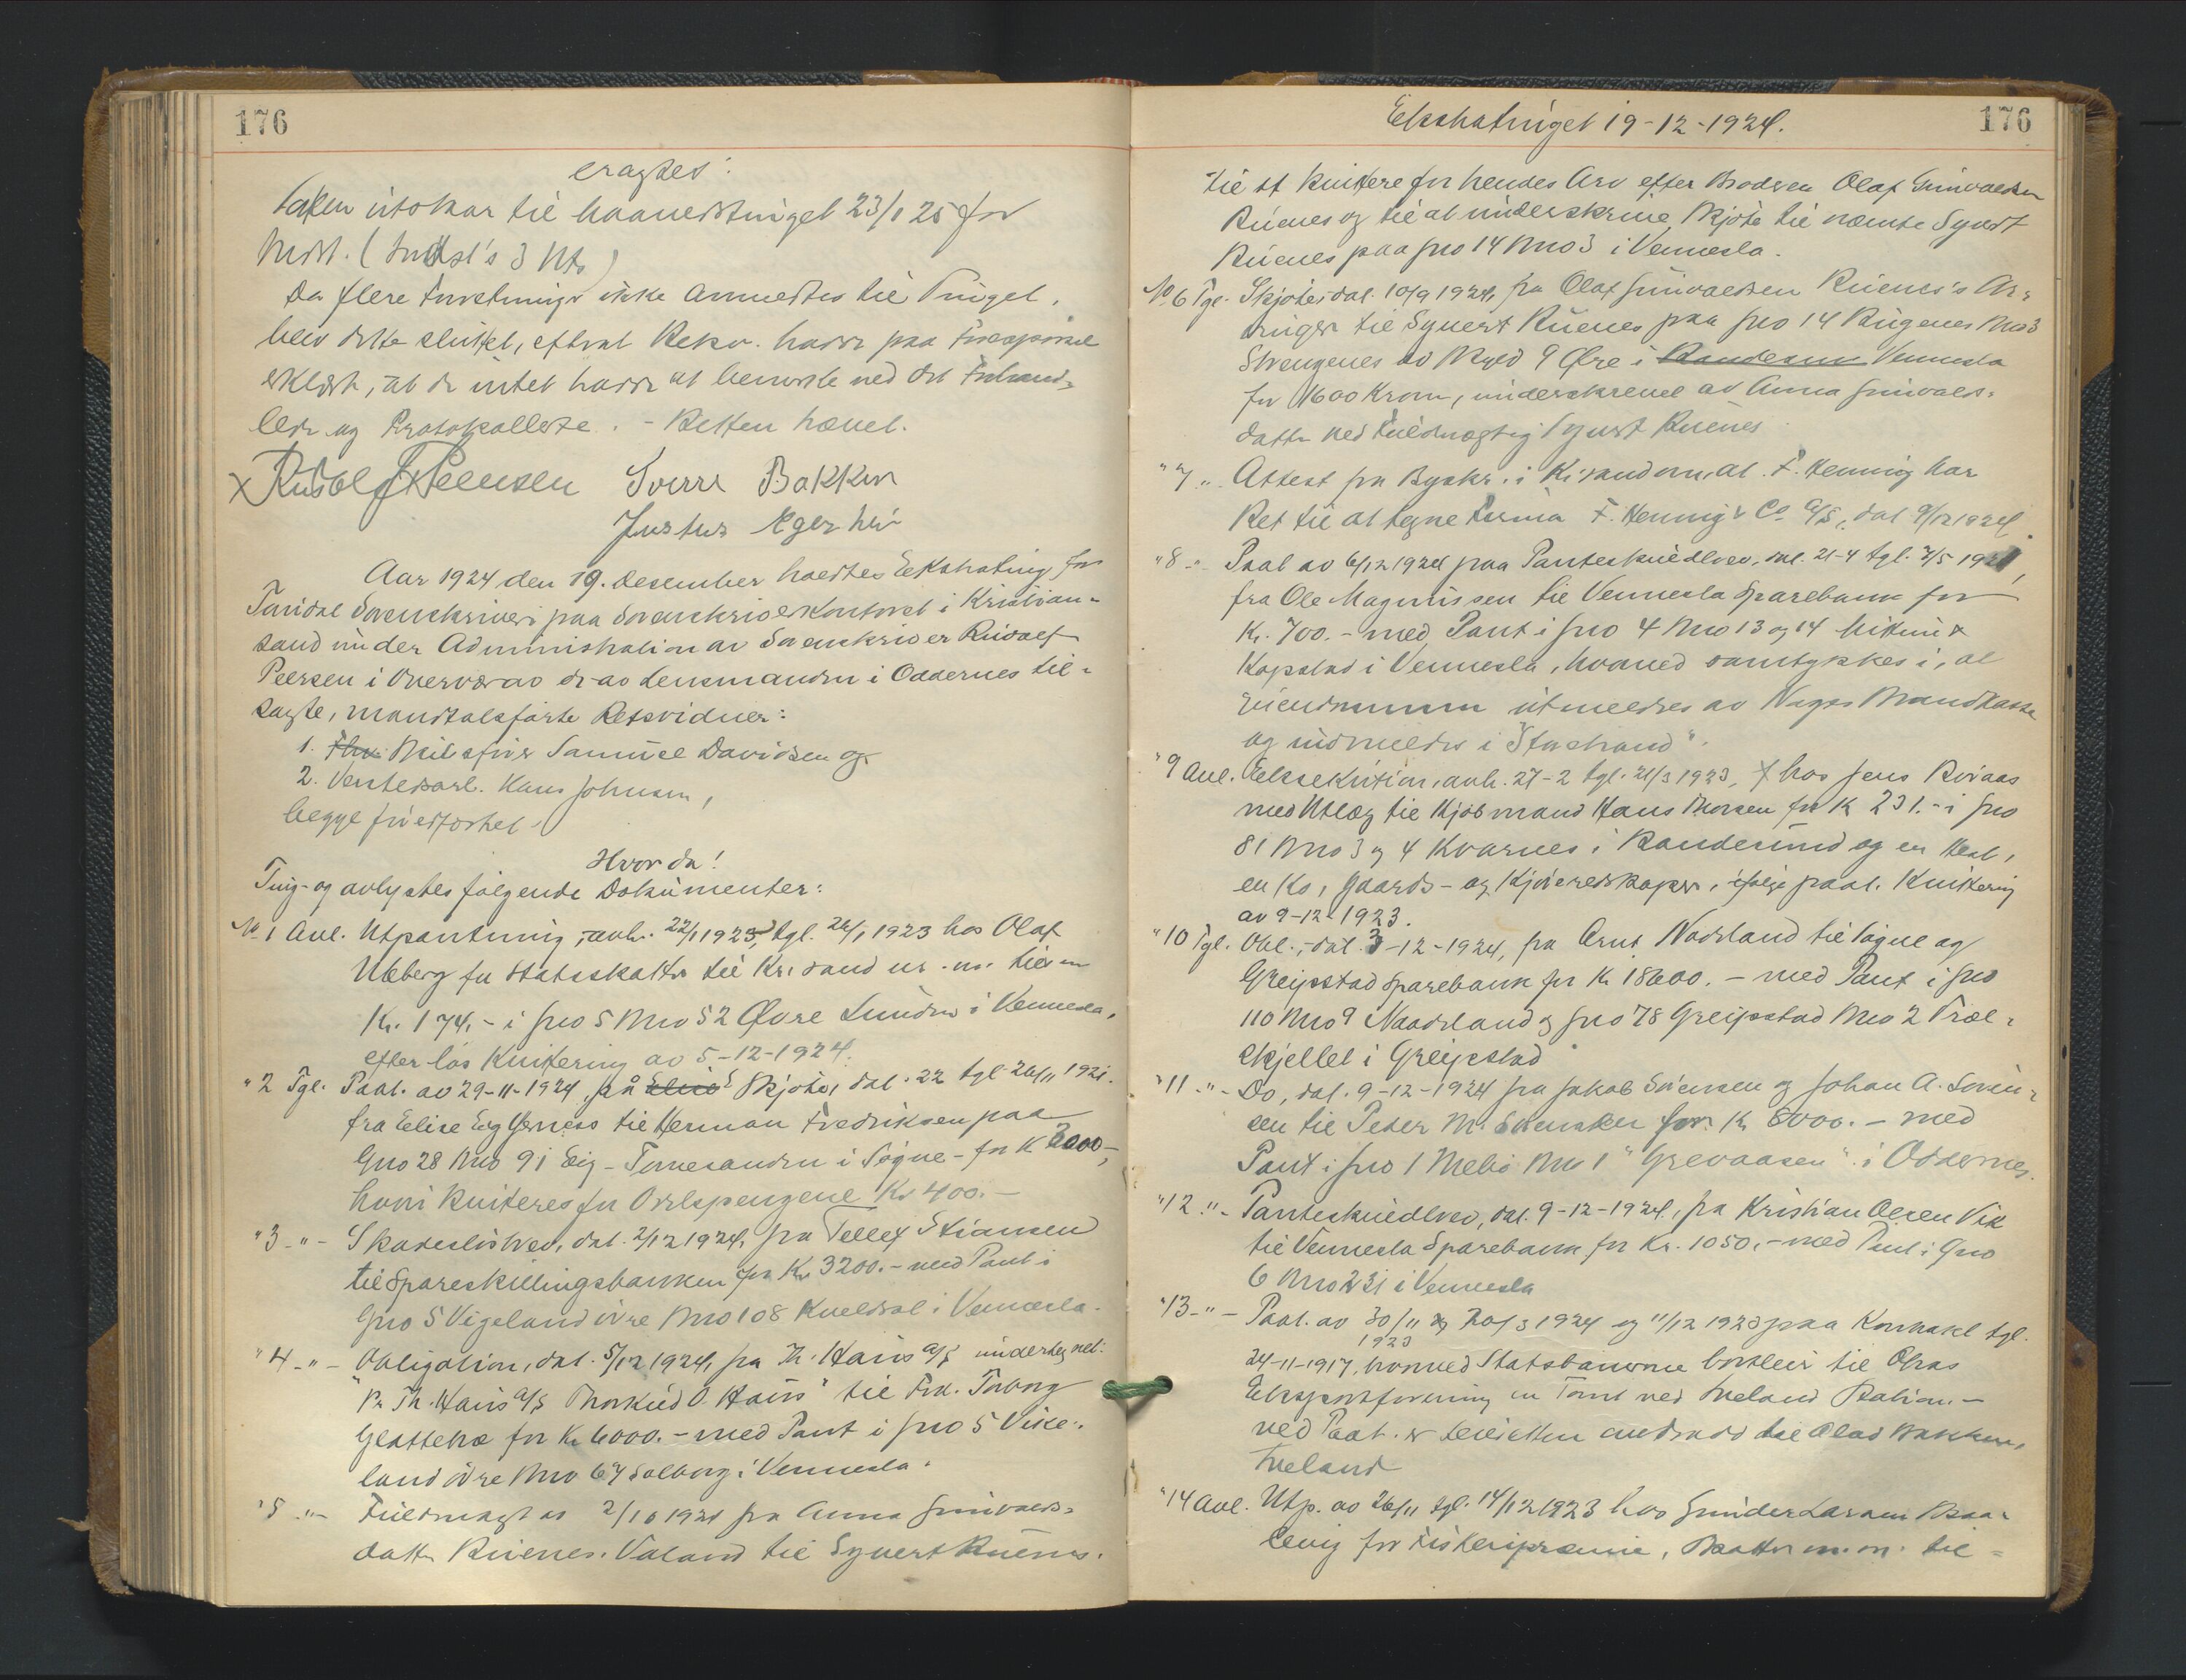 176
eragtes:
Saken utstaar til maanedstinget 23/1 25 for
Da flere Forretninger ikke anmeldtes til Tinget,
blev dette sluttet, efterat Rekv. havde paa Forespørsel
erklært, at de intet hadde at bemerke ved det Forhand-
lede og Protokollerte. - Retten hævet.
Rudolf Peersen Sverre Bakken
Justus Egerhei
Aar 1924 den 19. desember holdtes Ekstrating for
Torridal Sorenskriveri paa Sorenskriverkontoret i Kristian-
sand under Administration av Sorenskriver Rudolf
Peersen i Overvær av de av Lensmanden i Oddernes til-
sagte, mandtalsførte Retsvidner:
1. Bilchauffør Samuel Davidsen og
2. Verksarb. Hans Johnsen,
begge forerfortet.
Hvorda!
Ting- og avlystes følgende Dokumenter:
No 1 Avl. Utpantning, avh. 22/1 1923, tgl. 24/1 1923 hos Olaf
Ueberg for Statsskatter til Kr.sand m. m. tils.
Kr. 174,- i gno 5 bno 52 Øvre Lunden i Vennesla,
efter løs Kvittering av 5-12-1924.
"2 Tgl. Paat. av 29-11-1924, på Skjøte, dat. 22 tgl 26/11 1921.
fra Elise Eeg Jerness til Herman Fredriksen paa
Gno 28 bno 91 Eig-Tornesanden i Søgne - for K 2000-,
hvori kvitteres for Ovrlspengene Kr 400.-
"3 -"- Skadesløsbrev, dat. 2/12 1924, fra Tellef Stiansen
til Spareskillingsbanken for Kr. 3200.- med Pant i
Gno 5 Vigeland øvre bno 108 Kveldsol i Vennesla.
"4 -"- Obligation, dat. 5/12 1924, fra Th. Haus a/s undertegnet:
"Pr. Th. Haus a/s Thorkild O. Haus" til Frk. Torborg
Glattetræ for Kr 6000.- med Pant i gno 5 Vike-
land øvre bno 67 Solborg i Vennesla.
"5 -"- Fuldmagt av 2/10 1924 fra Anna Gunvalds-
datter Ruenes, Valand til Syvert Ruenes.
Ekstratinget 19-12-1924.
176
til at kvittere for hendes Arv efter Broderen Olaf Gunvaldsen
Ruenes og til at underskrive Skjøte til nævnte Syvert
Ruenes paa gno 14 bno 3 i Vennesla.
No 6 Tgl. Skjøte, dat. 10/9 1924, fra Olaf Gunvaldsen Ruenes's Ar-
vinger til Syvert Ruenes paa gno 14 Rugenes bno 3
Strengenes av Skyld 9 Øre i Randesund Vennesla
for 1600 Kroner, underskrevet av Anna Gunvalds-
datter ved Fuldmægtig Syvert Ruenes
"7 -"- Attest fra Byskr. i Kr.sand om, at F. Hennig har
Ret til at tegne Firma F. Hennig & Co a/s, dat 9/12 1924.
"8 -"- Paat av 6/12 1924 paa Panteskuldbrev, dat. 21-4 tgl. 2/5 1921,
fra Ole Magnussen til Vennesla Sparebank for
Kr. 700.- med Pant i gno 4 bno 13 og 14
Kapstad i Vennesla, hvorved samtykkes i, at
Eiendommen utmeldes av Norges Brandkasse
og indmeldes i "Storebrand".
"9 Avl. Eksekution, avh. 27-2 tgl. 21/3 1923, hos Jens Roiaas
med Utlæg til Kjøbmand Hans Thorsen for K 231.- i gno
81 bno 3 og 4 Kvarnes i Randesund og en Hest,
en Ko, Gaards- og Kjøreredskaper, ifølge paat. Kvittering
av 9-12-1923.
"10 Tgl. Obl., dat. 3-12-1924, fra Arnt Nodeland til Søgne og
Greipstad Sparebank for Kr 18600.- med Pant i gno
110 bno 9 Naadeland og gno 78 Greipstad bno 2 Træl-
skjellet i Greipstad
"11 -"- Do, dat. 9-12-1924 fra Jakob Sørensen og Johan A. Soren-
sen til Peder M. Svensken for K 8000.- med
Pant i gno 1 Mebø bno 1 "Grevaasen" i Oddernes.
"12 -"- Panteskuldbrev, dat. 9-12-1924, fra Kristian Olsen Vik
til Vennesla Sparebank for Kr. 1050.- med Pant i Gno
6 bno 231 i Vennesla
"13 -"- Paat. av 30/11 1923 20/3 1924 og 11/12 1923 paa Kontrakt tgl.
24-11-1917, hvorved Statsbanerne bortleier til Agnas
Eksportforening en Tomt ved Iveland Station. -
ved Paat. er Leieretten overdradd til Olav Bakken,
Iveland
"14 Avl. Utp. av 26/11 tgl. 14/12 1923 hos Gunder Larsen Baa-
levig for Fiskeripræmie, Skatter m. m. til-